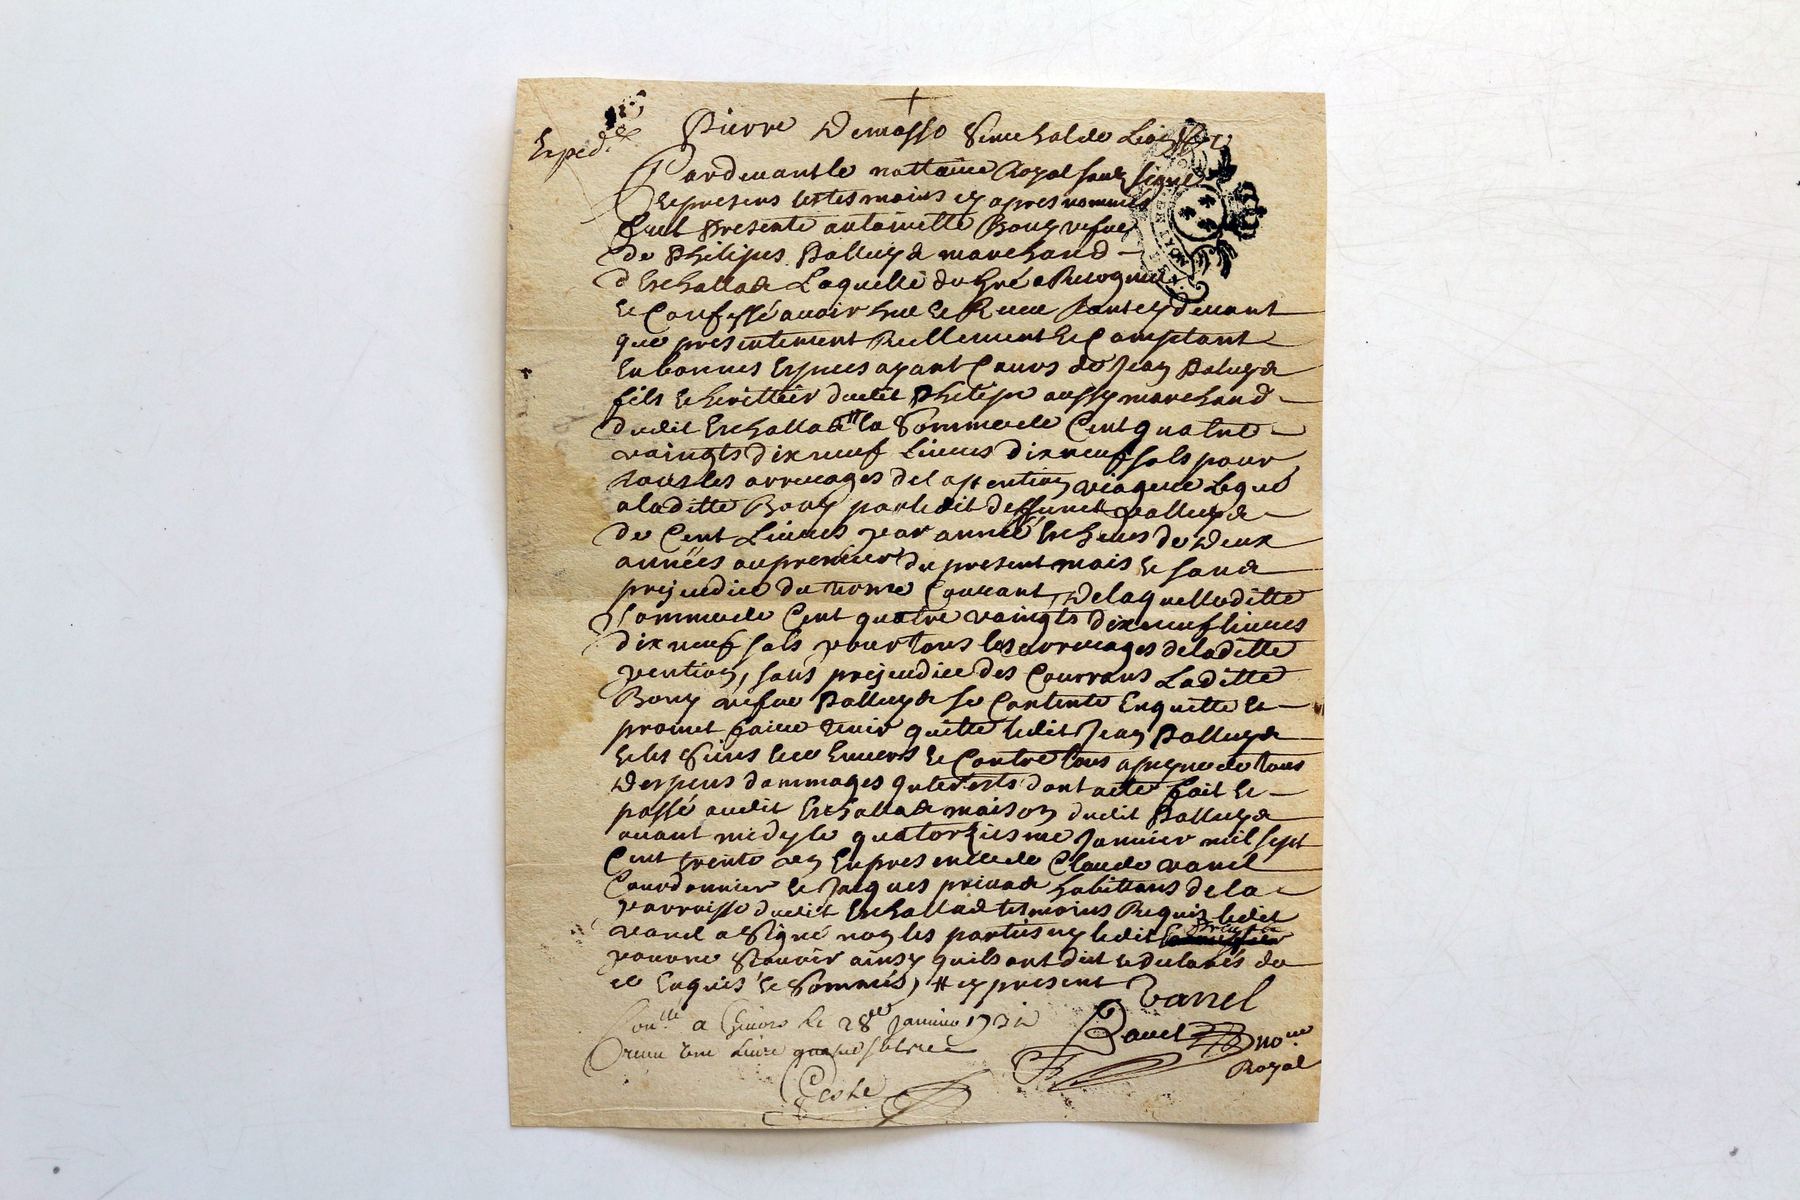 Exped.
Pierre Demasso Senechal de Lion
Pardevant le nottaire Royal sousigné
Et presens les tesmoins cy apres nommés
feut presente antoinette Bony vefve
de Philipes Palluy d marchand
d'Eschallas Laquelle de gré a Recognu
et Confessé avoir heu et Receu tant cy devant
que presentement Reellement et Comptant
En bonnes Especes ayant Cours de Jean
fils et heritier dudit Philipe aussy marchand
dudit la Somme de Cent quatre
vaingts dix neuf Livres dix neuf sols pour
tous les arrerages de la pention viagere Legué
a laditte Bony par ledit deffunct
de Cent Livres par année Escheus de deux
années au premier du present mois et sans
prejudice du terme Courant, De laquelle ditte
Somme de Cent quatre vaingts dix neuf livres
dix neuf sols pour tous les arrerages de laditte
pention, sans prejudice des Courrans Laditte
Bony vefve se Contente En quitte et
promet faire tenir quitte ledit Jean
et les Siens Envers et Contre tous a peyne de tous
Despens dommages Interests dont acte fait et
passé audit maison dudit
avant midy le quatorziesme Janvier mil sept
Cent trente En presence de Claude Vanel
Courdonnier et Jacques habittans de la
parroisse dudit tesmoins Requis ledit
Vanel a Signé non les parties ny ledit
pour ne Scavoir ainsy quils ont dit et declarés de
ce Enquis et Sommés, # cy present
Vanel
Con.lle a Givors le 28e Janvier 173
Receu une Livre
no.re
Royal